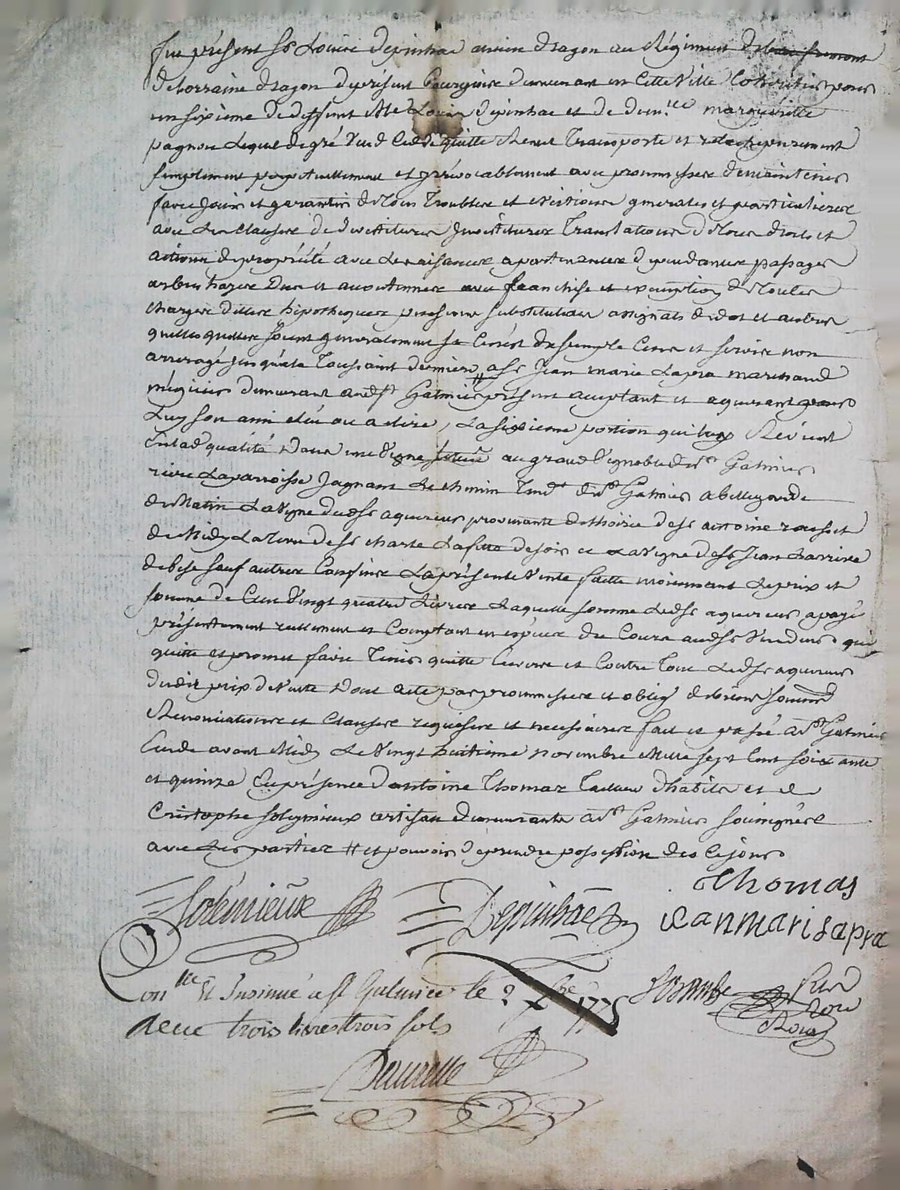 fut présent sr Louire depinhac ancien dragon au Régiment de
de Lorraine dragon dprésent Bourgeoire demeurant en Cette Ville Cohéritier pour
un sixieme de deffunt Me Louir depinhac et de dem.lle margueritte
pagnon Lequel de gré Vend Cedde quitte Remet Transporte et
simplement perpetuellement et yrrévocablement avec promesse de maintenir
faire jouir et garantir de tour Troubler et Evictionr generaler et particulierer
avec Les Clauser de devettiturer Jnvettiturer Translationr de tour droits et
actionr de propriété avec Les aisancer apartenancer dependancer passager
arbrer hayer Eaux et accoutumée avec franchise et exemption de touter
charger detter hipothequer pensionr substitutionr assignats de dot et autrer
quelles quelles soient generalement du simple Cenr et servir non
arreragé jusqu'à la Toussaint dernierer, a sr Jean marie Lapra marchand
mégicier demeurant audt St Galmier présent acceptant et aquerant
Luy son ami élu ou a élire, La sixieme portion qui luy Revient
en lad qualité dans une Vigne au grand Vignoble de St Galmier
Laparroisse Jognant Le chemin Tend de St Galmier a Bellegarde
de Matin La Vigne dudt sr aquereur provenante d'hoirie de sr antoine rousset
de Midy La Terre de sr charle Lafitte de soir et La Vigne de sr Jean Larrive
de bise sauf autrer Confinr La présente Vente faitte moiennant Le prix et
somme de Cent Vingt quatre Livrer Laquelle somme Ledt sr aquereur a payé
présentement reellement et Comptant en espece du Courr audt sr Vendeur qui
quitte et promet faire Tenir quitte Enverr et Contre Tour Ledt sr aquereur
dudit prix de Vente dont acte par promesser et oblig de bienr soumr
Renonciationr et Clauser requiser et necessairer fait et passé a St Galmier
Etude avant Midy Le Vingt huitieme novembre Mille sept Cent soixante
et quinze En présence d'antoine Thomar Tailleur d'habits et de
Cristophe solegnieux artisan demeurants a St Galmier soussignés
avec Les partier # et pouvoir d'en prendre possession der ce jour
Solegnieux Depinhac Thomas
Jeanmarilapra
Conlle Et Insinué a St Galmier le 2 Xbre 1775
Reçu trois livres trois sols